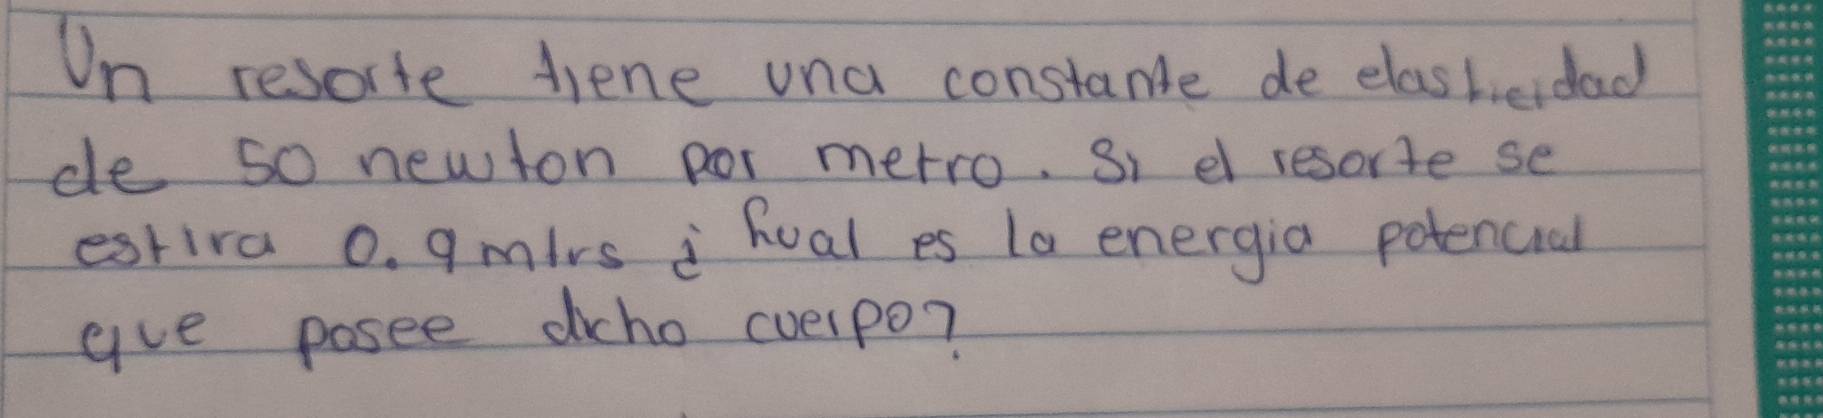 Un resorte tiene una constante de elasticidad
de 50 newton por metro. Si el resorte se
estira 0.9 mtrs ¿ Cual es la energia potencial
que posee dicho cuerpo?